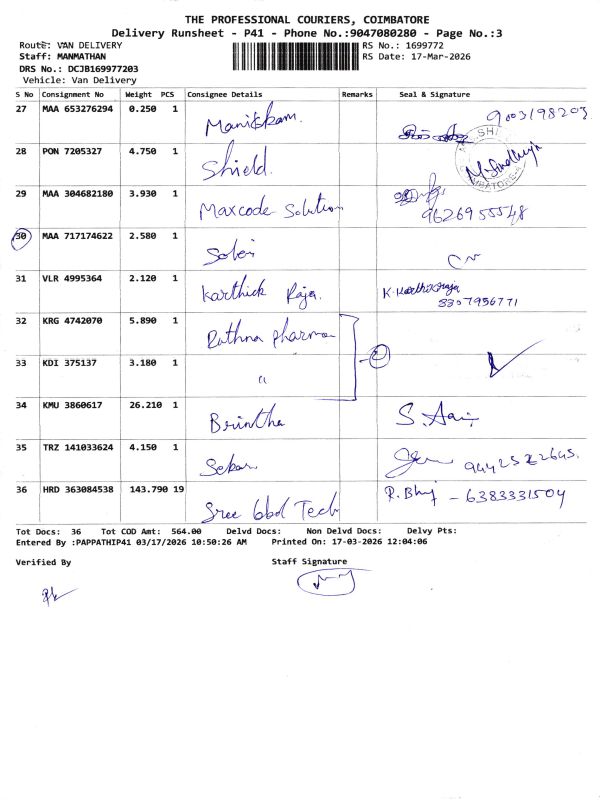 THE PROFESSIONAL COURIERS, COIMBATORE
Delivery Runsheet - P41 - Phone No.:9047080280 - Page No.:3
Route: VAN DELIVERY
RS No.: 1699772
Staff: MANMATHAN
RS Date: 17-Mar-2026
DRS No.: DCJB169977203
Vehicle: Van Delivery
S No Consignment No Weight PCS Consignee Details Remarks Seal & Signature
27 MAA 653276294 0.250 1 Manickam. 9003198203
28 PON 7205327 4.750 1 Shield. M. Sindhuja
29 MAA 304682180 3.930 1 Maxcode Solution 9626955548
30 MAA 717174622 2.580 1
31 VLR 4995364 2.120 1 Karthick Raja. K. Karthickraja
3307956771
32 KRG 4742070 5.890 1 Rathna pharma
33 KDI 375137 3.180 1 "
34 KMU 3860617 26.210 1 Brintha
35 TRZ 141033624 4.150 1 Sekar
36 HRD 363084538 143.790 19 Sree Tech 6383331504
Tot Docs: 36 Tot COD Amt: 564.00 Delvd Docs: Non Delvd Docs: Delvy Pts:
Entered By :PAPPATHIP41 03/17/2026 10:50:26 AM Printed On: 17-03-2026 12:04:06
Verified By Staff Signature